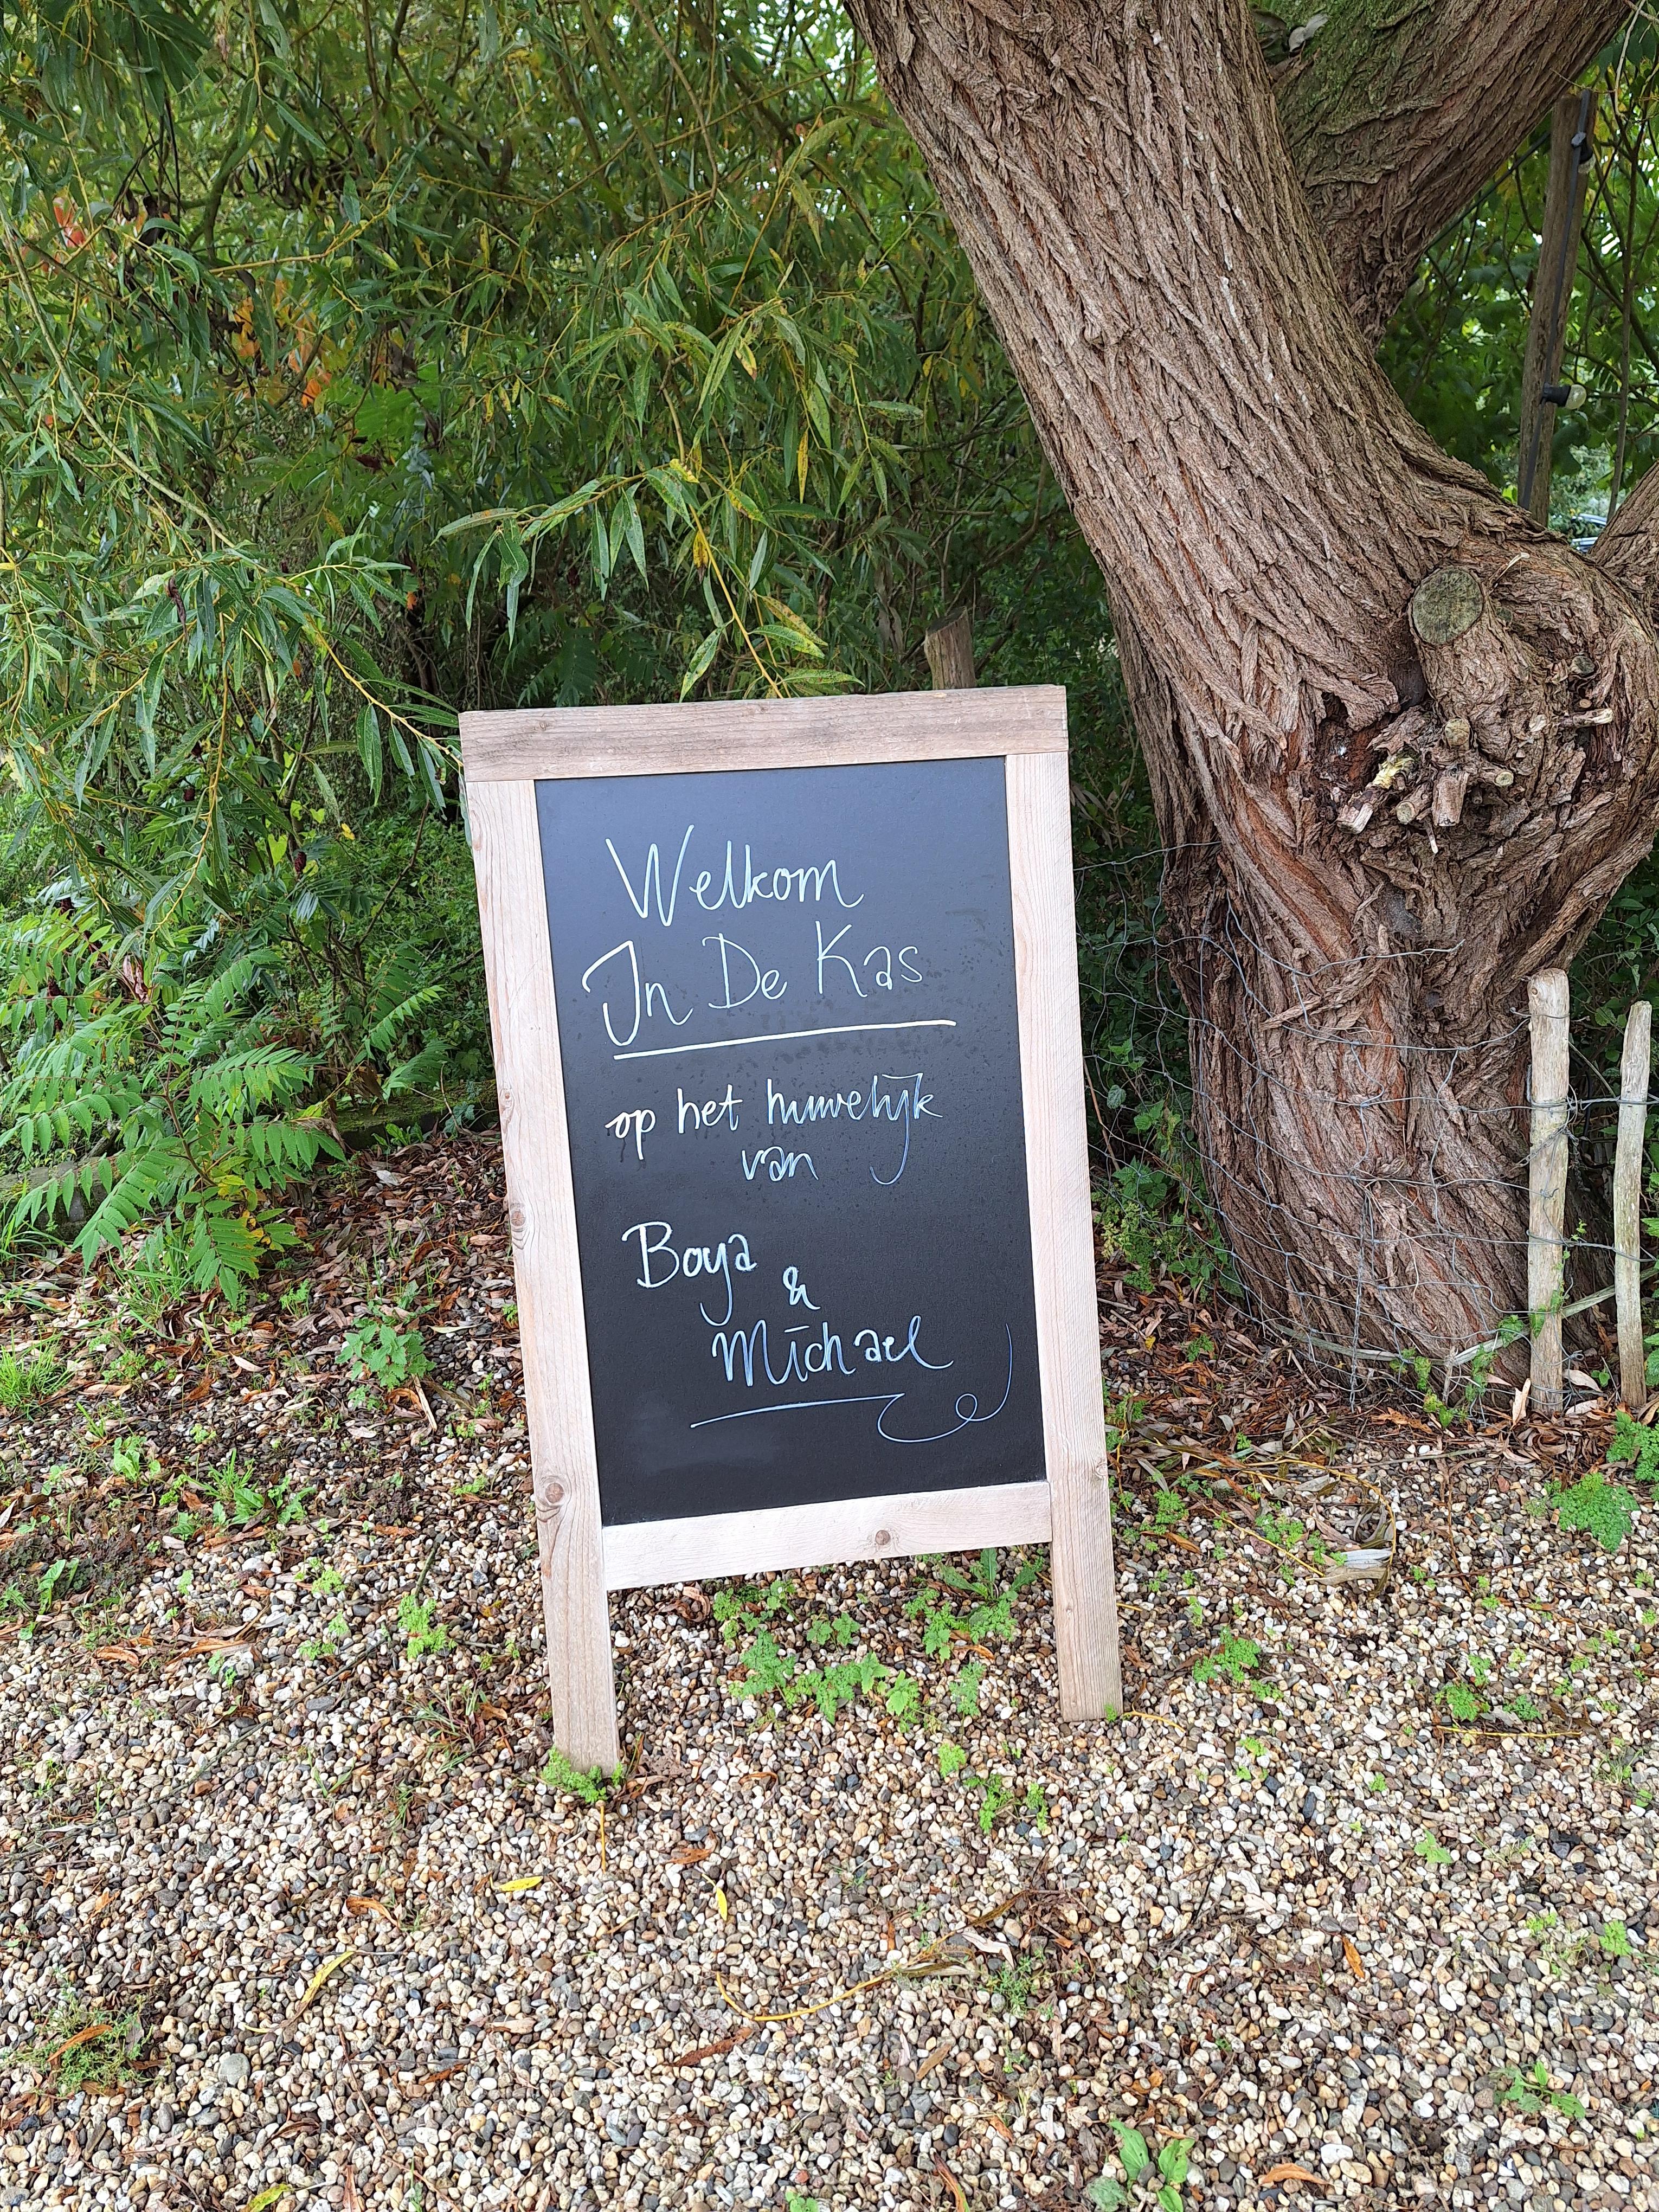 Welkom
In De Kas
op het huwelijk
van
Boya
&
Michael